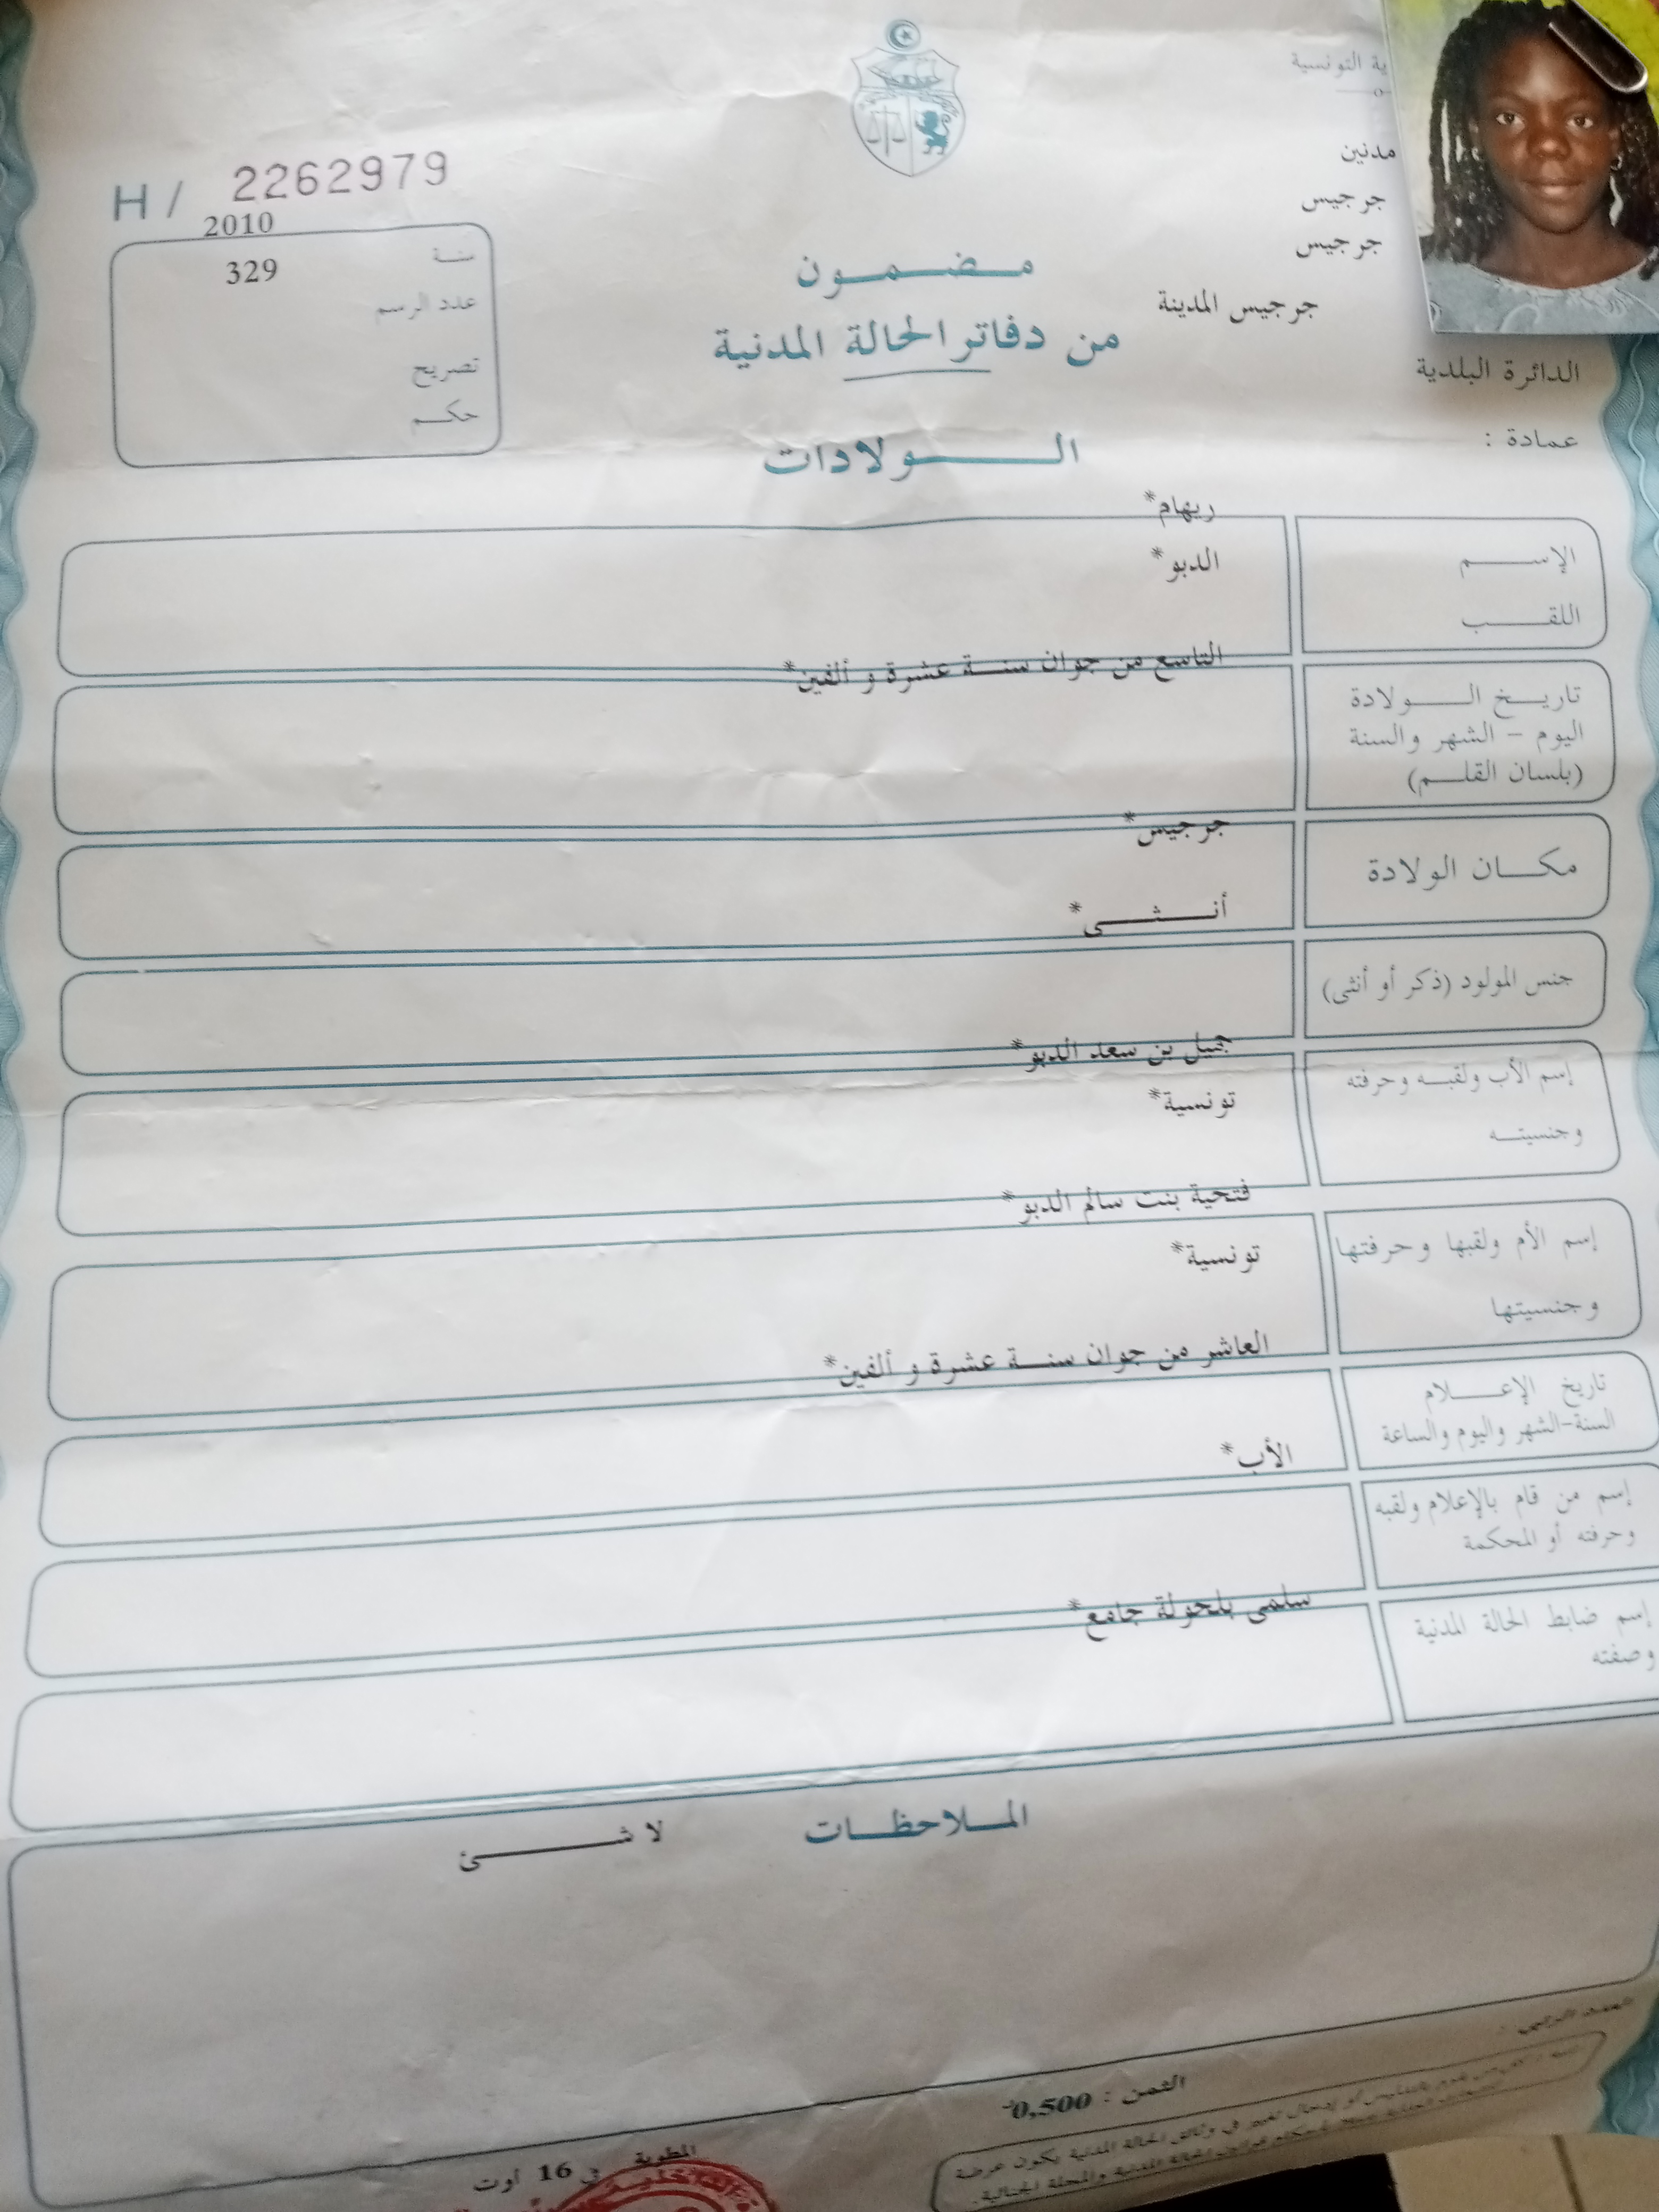 ية التونسية
مدنين
جرجيس
جرجيس
جرجيس المدينة
الدائرة البلدية
عمادة :
H / 2262979
2010
سنة
329
عدد الرسم
تصريح
حكم
مضمون
من دفاتر الحالة المدنية
الولادات
ريهام*
الإسم
الدبو*
اللقب
التاسع من جوان سنة عشرة و ألفين*
تاريخ الولادة
اليوم - الشهر والسنة
(بلسان القلم)
جرجيس*
مكان الولادة
أنثى*
جنس المولود (ذكر أو أنثى)
جميل بن سعد الدبو*
إسم الأب ولقبه وحرفته
تونسية*
وجنسيته
فتحية بنت سالم الدبو*
إسم الأم ولقبها وحرفتها
تونسية*
وجنسيتها
العاشر من جوان سنة عشرة و ألفين*
تاريخ الإعلام
السنة-الشهر واليوم والساعة
الأب*
إسم من قام بالإعلام ولقبه
وحرفته أو المحكمة
سلمى بلحولة جامع*
إسم ضابط الحالة المدنية
وصفته
الملاحظات
لا شئ
الثمن : 0,500
في وثائق الحالة المدنية يكون عرضة
المطوية
في 16 أوت